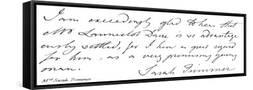 I am exceedingly glad to hear, that
Mr Launcelot is so advantage
ously settled, for I have a great regard
for him, as a very promising young
man. Sarah Trimmer
Mrs Sarah Trimmer.